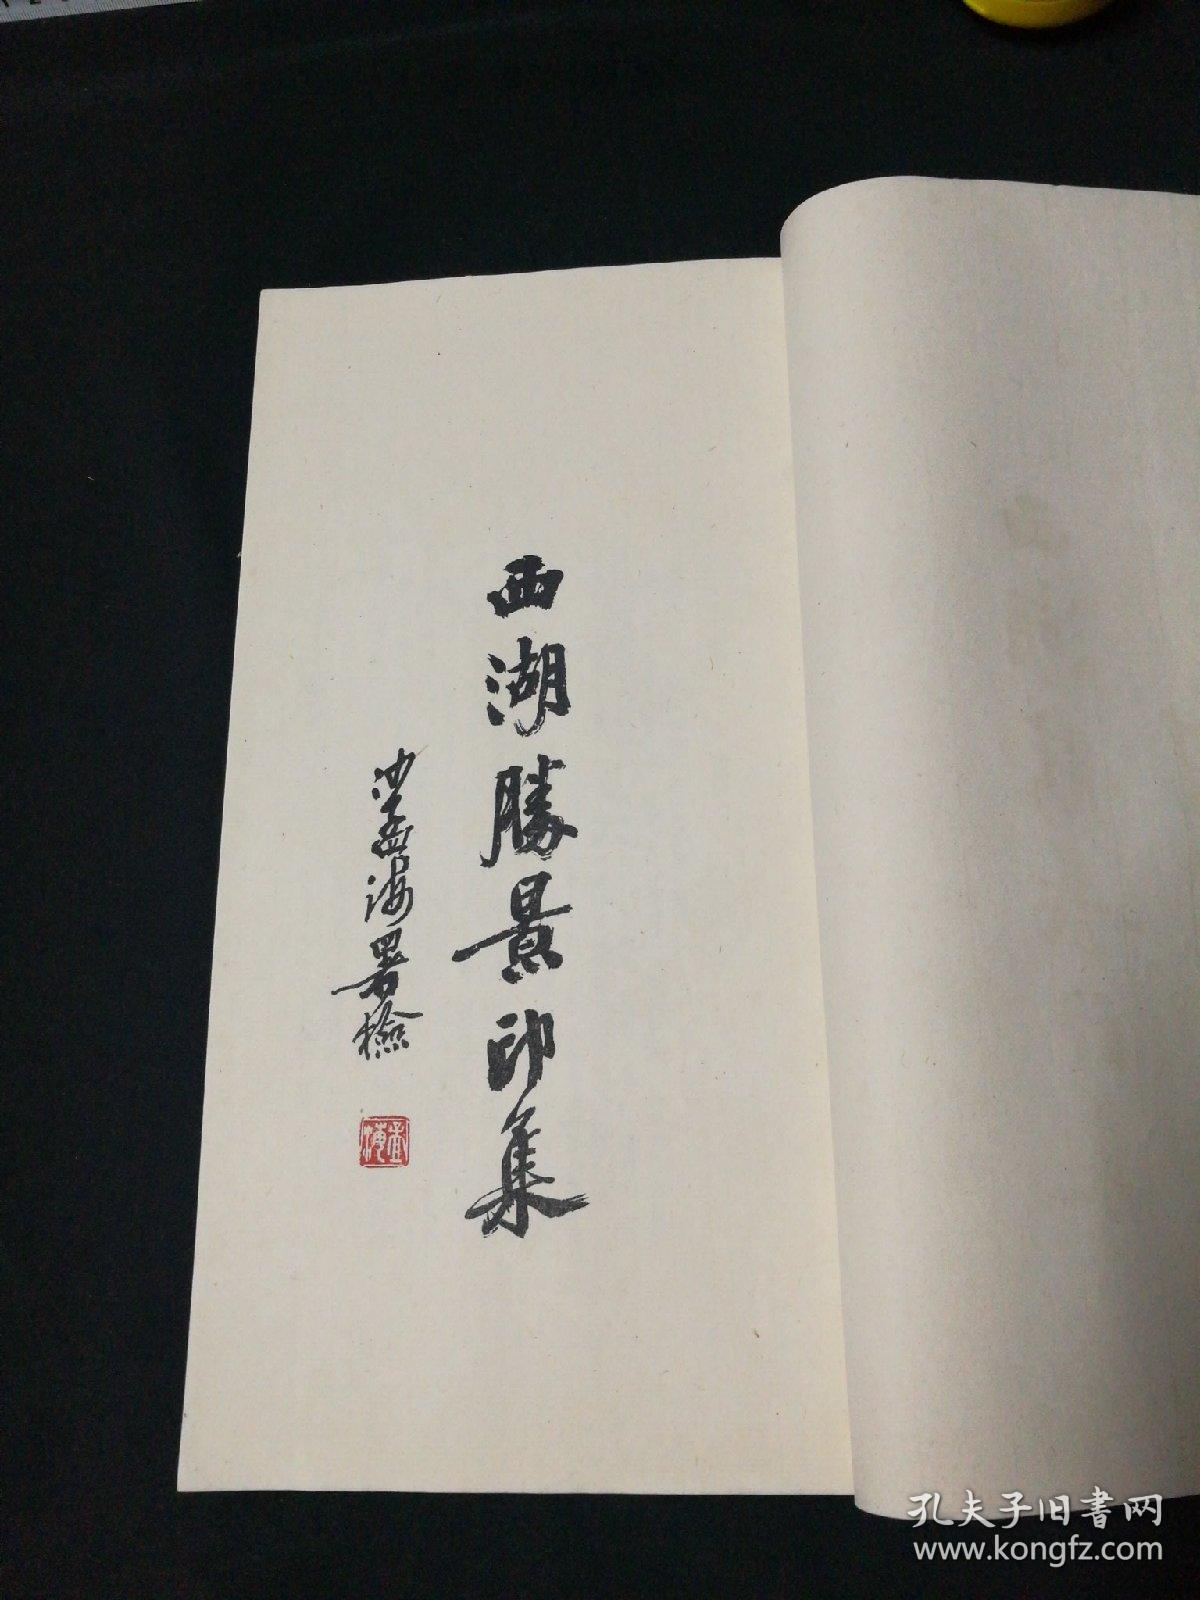 西湖勝景印集
沙孟海署檢
孔夫子旧書网
www.kongfz.com